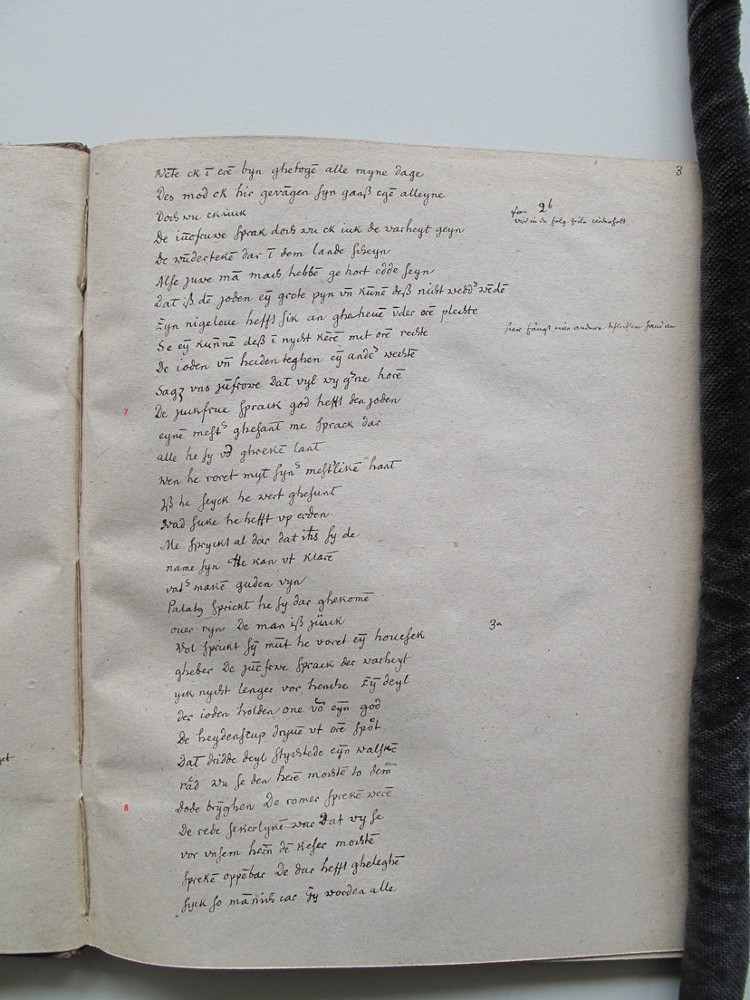 3
wēte ck ī erē byn ghetogē alle myne dage
Des mod ck hir gevāgen syn ganß egē alleyne
Doch wu ck iuk
De iūcfruwe sprak doch wu ck iuk de warheyt geyn
De wūdertekē dar ī dem lande scheyn
Alse juwe mā hebbē ge hort edde seyn
Dat iß dē joden eȳ grote pyn vn̄ kūnē deß nicht wedd wēdē
Eyn nigeloue hefft sik an gheheuē vder orē plechte
Se eȳ kun̄nē deß ī nycht kērē met orē rechte
De ioden vn̄ heiden teghen eȳ andˢ vechte
Sagz vns jūfrowe Dat vyl wy gˢne horē
7 De junkfrue sprack god hefft den joden
eynē mestˢ ghesant me sprack dar
alle he sy vā ghrekē lant
wen he roret myt synˢ mestˢlikē hant
iß he seyck he wert ghesunt
Wad suke he hefft vp erden
Me spryckt al dar dat ih̄s sy de
name syn He kan vt klarē
watˢ makē guden vyn
Palatz sprickt he sy dar ghekomē
ouer ryn De man iß junck
Wol sprickt sȳ mūt he voret eȳ houesek
3a
gheber De jūcfrwe sprack der warheyt
yck nycht lenger vor henche Eȳ deyl
der ioden holden one vō eyn god
De heydenscup dryuē vt orē spot
Dat dridde deyl stychtede eyn walskē
rād wu se den herē mochtē to dem
8 Dode brȳghen De romer sprekē werē
De rede sekerlykē war Dat vy se
vor vnsem herē dē keser mochtē
sprekē oppēbar De dar hefft gheleghē
syck so mānich iar Sy worden alle
2b
wird in der folg. Zeile wiederholt.
hier fängt eine andere Hand an